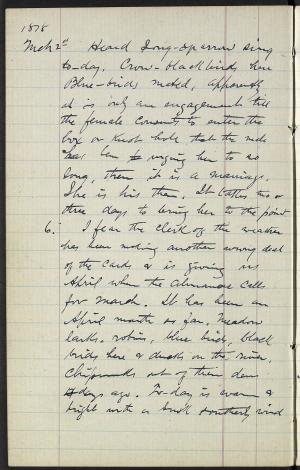 1878
Mch 2d Heard Song-sparrow sing
to-day. Crow-blackbirds here
Blue-birds mated, apparently
it is only an engagement till
the female consents to enter the
box or knot hole that the male
has been urging her to so
long, then it is a marriage.
She is his then. It takes two or
three days to bring her to the point
6. I fear the Clerk of the weather
has been making another wrong deal
of the Cards & is giving us
April when the almanac calls
for March. It has been an
April month so far. Meadow
larks, robins, blue birds, black
birds here & ducks on the river.
Chipmunks out of their dens
days ago. To-day is warm &
bright with a brisk southerly wind